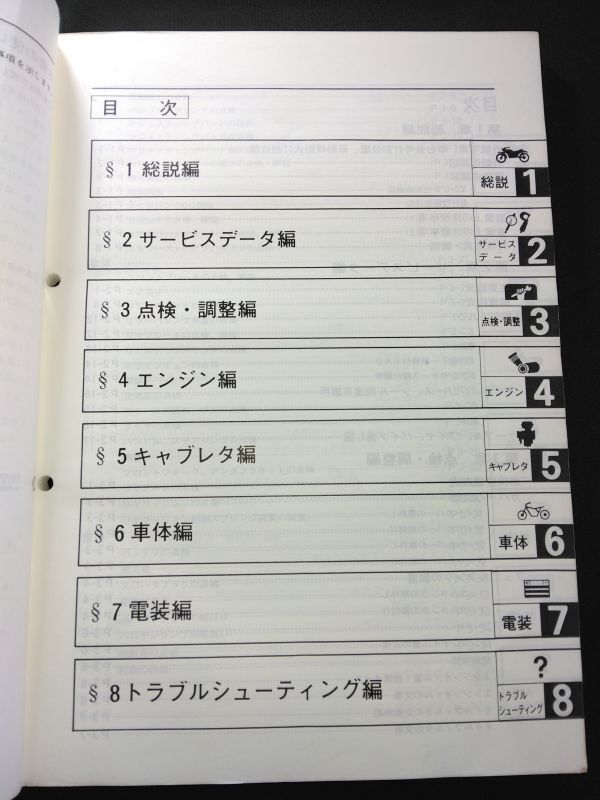 事項を示します
目 次
§1 総説編
総説
1
§2 サービスデータ編
サービス
データ
2
§3 点検・調整編
点検・調整
3
§4 エンジン編
エンジン
4
§5 キャブレタ編
キャブレタ
5
§6 車体編
車体
6
§7 電装編
電装
7
§8 トラブルシューティング編
?
トラブル
シューティング
8